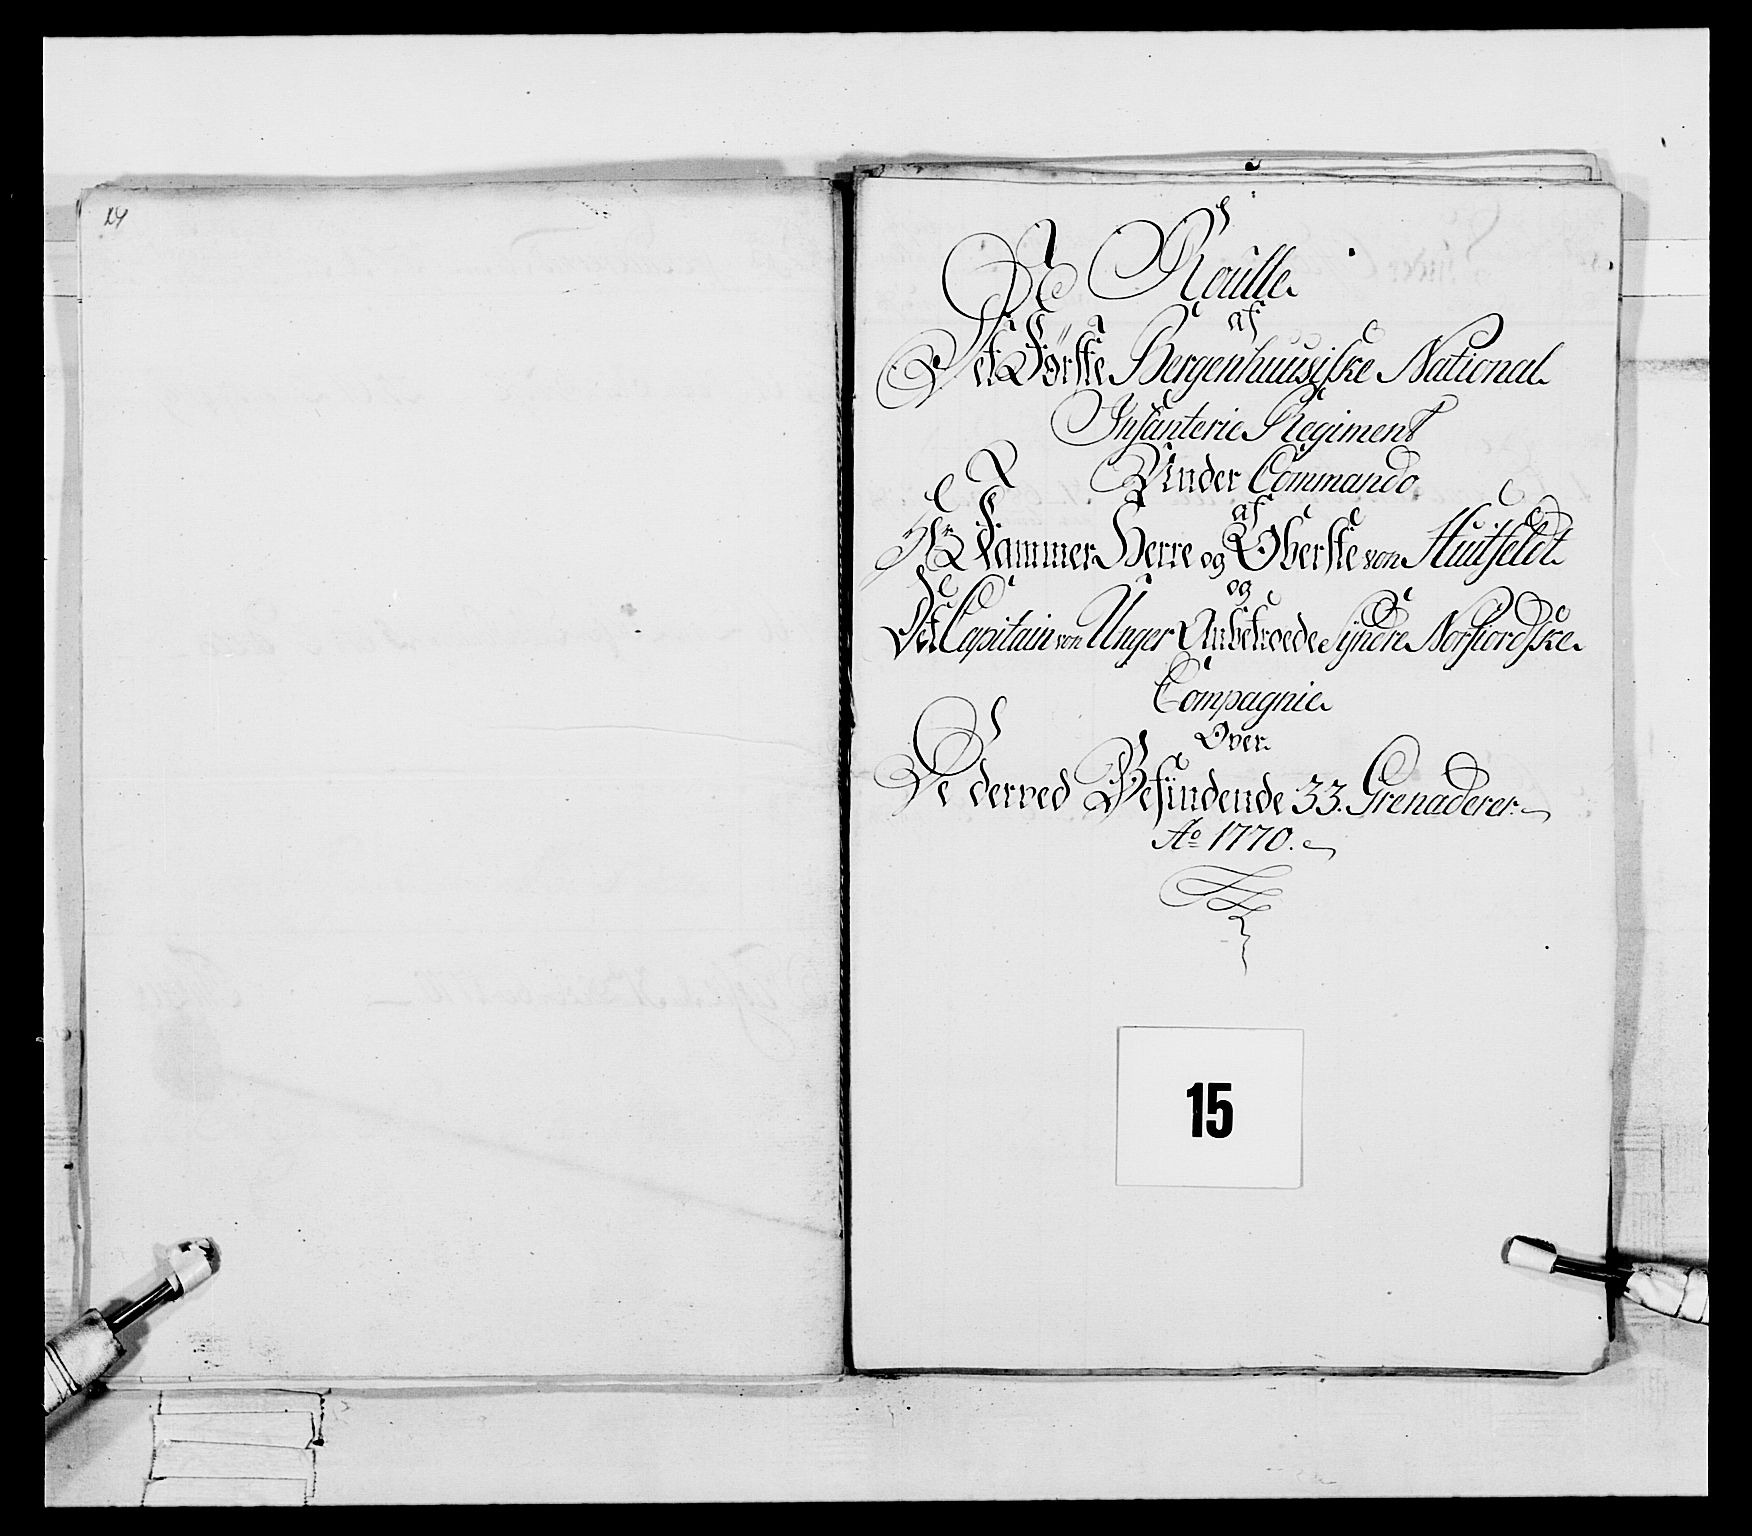 14
Roulle
af
Det Førske Bergenhuusiske National
Infanterie Regiment
Under Commando
af
Hr Kammer Herre og Oberste von Huitfeldt
og
Det Capitain von Unger Anbetroede Syndre Norfiordske
Compagnie
Over
De derved Befindende 33. Grenaderer
Ao 1770.
15